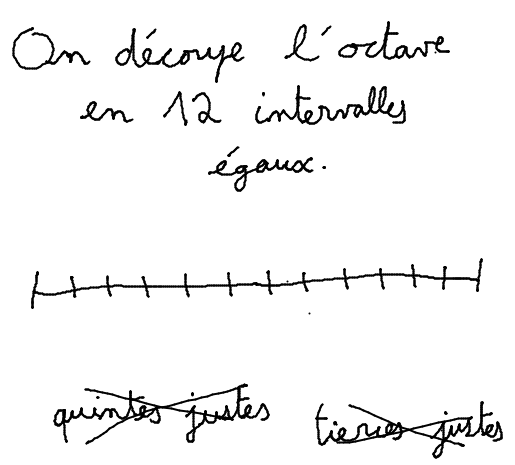 On découpe l'octave
en 12 intervalles
égaux.
quintes justes tierces justes